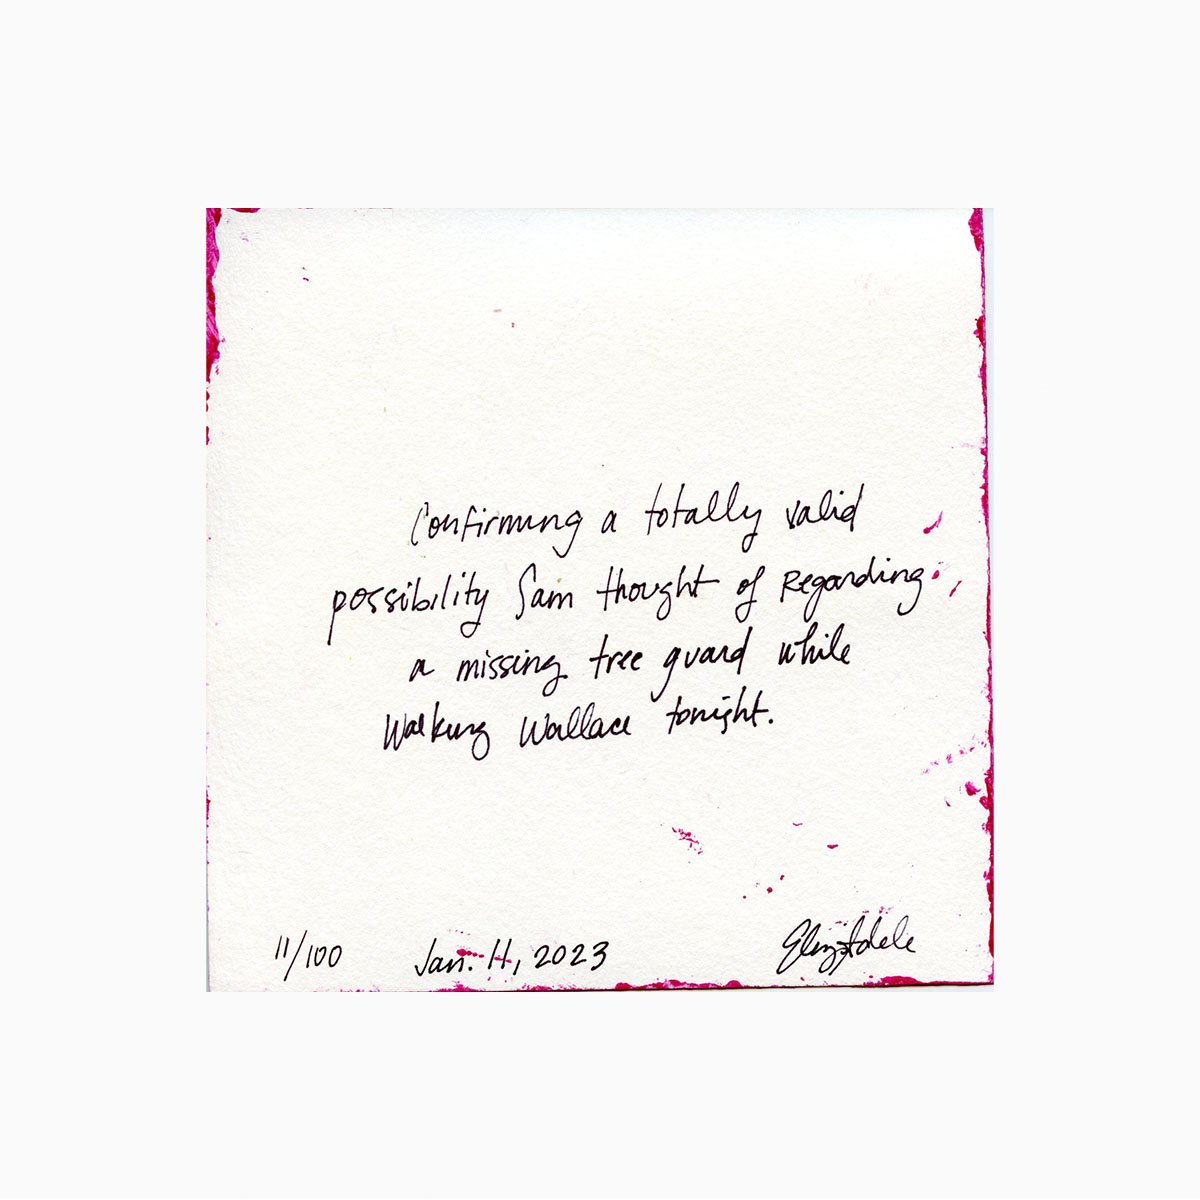 Confirming a totally valid
possibility Sam thought of Regarding
a missing tree guard while
Walking Wallace tonight.
11/100 Jan. 11, 2023